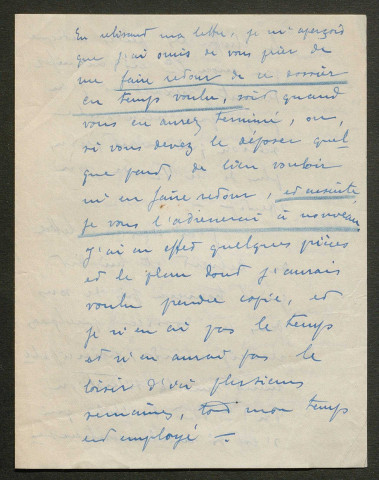 En relisant ma lettre, je m'aperçois
que j'ai omis de vous prier de
me faire retour de ce dossier
en temps voulu, soit quand
vous en aurez terminé, ou,
si vous devez le déposer quel
que part, de bien vouloir
m'en faire retour, et ensuite
je vous l'adresserai à nouveau
J'ai en effet quelques pièces
et le plan dont j'aurais
voulu prendre copie, et
je n'en ai pas le temps
et n'en aurai pas le
loisir d'ici plusieurs
semaines, tout mon temps
est employé —